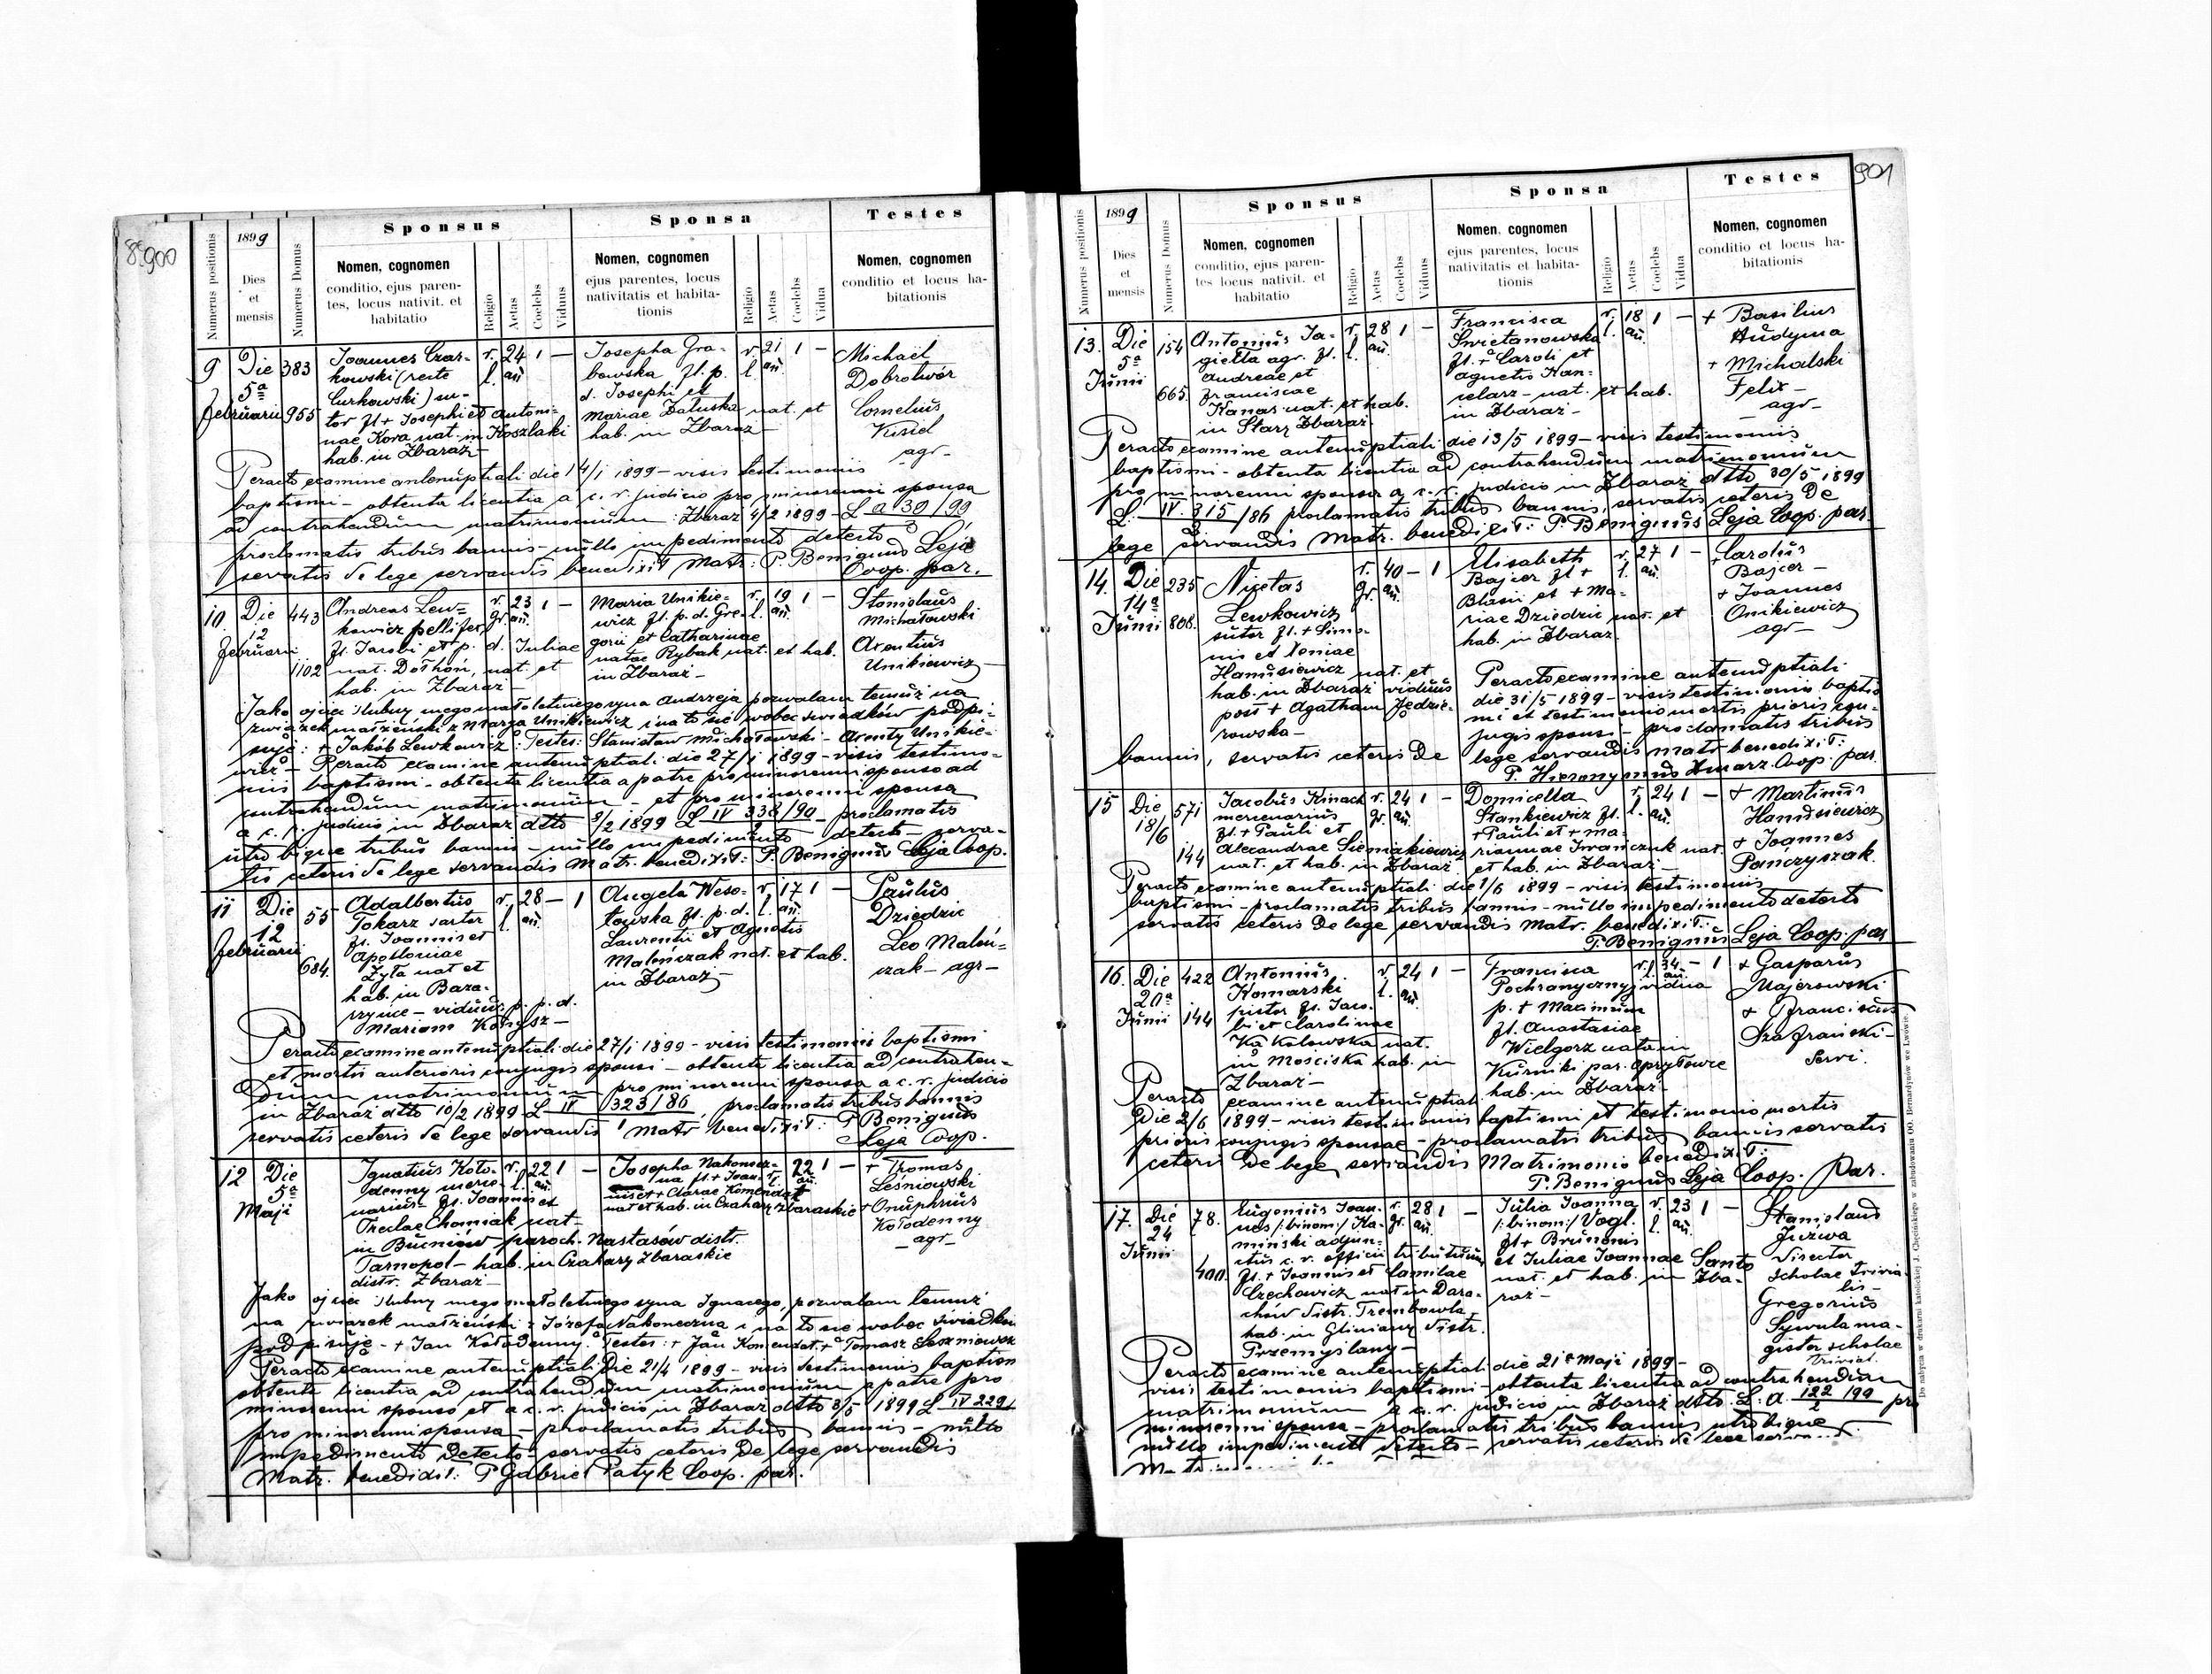 8 900
Numerus positionis
1899
Dies
et
mensis
Numerus Domus
Sponsus
Nomen, cognomen
conditio, ejus paren-
tes, locus nativit. et
habitatio
Religio
Aetas
Coelebs
Viduus
Sponsa
Nomen, cognomen
ejus parentes, locus
nativitatis et habita-
tionis
Religio
Aetas
Coelebs
Vidua
Testes
Nomen, cognomen
conditio et locus ha-
bitationis
9
Die
5ª
Februarii
383
955
Joannes Czar-
kowski (recte
Curkowski) su-
tor fl + Josephi et Antoni-
nae Kora nat. in Koszlaki
hab. in Zbaraż-
r. l.
24 an
1
—
Josepha Gra-
bowska fl. p.
d. Josephi et
Mariae Załuska nat. et
hab. in Zbaraż
r. l.
21 an.
1
—
Michaël
Dobrotwór
Cornelius
Kisiel
agr-
Peracto examine antenuptiali die 14/1 1899 - visis testimoniis
baptismi - obtenta licentia a c. r. judicio pro minorenni sponsa
ad contrahendum matrimonium: Zbaraż 4/2 1899 - L a 30/99
proclamatis tribus bannis - nullo impedimento detecto
servatis de lege servandis benedixit Matr: P. Benignus Leja
Coop. par.
10.
Die
12
Februarii
443
1102
Andreas Lew-
kowicz pellifex
fl. Jacobi et p. d. Juliae
nat. Dołhoń, nat. et
hab. in Zbaraż-
r. gr.
23 an.
1
—
Maria Unikie-
wicz fl. p. d. Gre-
gorii et Catharinae
natae Rybak nat. et hab.
in Zbaraż-
r. l.
19 an.
1
—
Stanislaus
Michałowski
Arentius
Unikiewicz
Jako ojciec ślubny mego małoletniego syna Andrzeja pozwalam temuż na
związek małżeński z Marya Unikiewicz i na to się wobec świadków podpi-
suję: + Jakób Lewkowicz: Testes: Stanisław Michałowski - Arenty Unikie-
wicz - Peracto examine antenuptiali die 27/1 1899 - visis testimo-
niis baptismi - obtenta licentia a patre pro minorenni sponso ad
contrahendum matrimonium - et pro minorenni sponsa
a c. r. judicio in Zbaraż dtto 8/2 1899 L IV 338/90 - proclamatis
utrobique tribus bannis - nullo impedimento detecto - serva-
tis ceteris de lege servandis Matr. benedixit: P. Benignus Leja Coop.
11
Die
12
Februarii
55
684.
Adalbertus
Tokarz sartor
fl. Joannis et
Apolloniae
Zyła nat et
hab. in Baza-
rzyńce - viduus p. p. d.
Mariam
r. l.
28 an.
—
1
Angela Weso-
łowska fl. p. d.
Laurentii et Agnetis
Maleńczak nat. et hab.
in Zbaraż
r. l.
17 an.
1
—
Paulus
Dziedzic
Leo Maleń-
czak - agr-
Peracto examine antenuptiali die 27/1 1899 - visis testimoniis baptismi
et mortis anterioris conjugis sponsi - obtenta licentia ad contrahen-
dum matrimonium pro minorenni sponsa a c. r. judicio
in Zbaraż dtto 10/2 1899 L IV 323/86, proclamatis tribus bannis
servatis ceteris de lege servandis Matr benedixit: P Benignus
Leja Coop.
12
Die
5ª
Maji
Ignatius Koło-
denny merce-
narius fl. Joannis et
Theclae Chomiak nat
in Bucniów paroch. Nastasów distr.
Tarnopol - hab. in Czahary Zbaraskie
distr. Zbaraż-
r. l.
22 an.
1
—
Josepha Nakonecz-
na fl. + Joan-
nis et + Clarae Komendat
nat et hab. in Czahary Zbaraskie
22 an.
1
—
+ Thomas
Leśniowski
+ Onuphrius
Kołodenny
- agr-
Jako ojciec ślubny mego małoletniego syna Ignacego, pozwalam temuż
na związek małżeński z Józefa Nakoneczna i na to się wobec świadków
podpisuję - + Jan Kołodenny. Testes: + Jan Komendat, + Tomasz
Peracto examine antenuptiali die 21/4 1899 - visis testimoniis baptism
obtenta licentia ad contrahendum matrimonium a patre pro
minorenni sponso et a c. r. judicio in Zbaraż dtto 3/5 1899 L IV 229/
pro minorenni sponsa - proclamatis tribus bannis - nullo
impedimento detecto - servatis ceteris de lege servandis
Matr. benedixit: P Gabriel Patyk Coop. par.
901
Numerus positionis
1899
Dies
et
mensis
Numerus Domus
Sponsus
Nomen, cognomen
conditio, ejus paren-
tes locus nativit. et
habitatio
Religio
Aetas
Coelebs
Viduus
Sponsa
Nomen, cognomen
ejus parentes, locus
nativitatis et habita-
tionis
Religio
Aetas
Coelebs
Vidua
Testes
Nomen, cognomen
conditio et locus ha-
bitationis
13.
Die
5ª
Junii
154
665.
Antonius Ja-
giełła agr. fl.
Andreae et
Franciscae
Kanas nat. et hab.
in Stary Zbaraż
r. l.
28 an.
1
—
Francisca
Świetanowska
fl. + Caroli et
Agnetis Kan-
celarz - nat. et hab.
in Zbaraż-
r. l.
18 an.
1
—
+ Basilius
Hudyma
+ Michalski
Felix-
- agr-
Peracto examine antenuptiali die 13/5 1899 - visis testimoniis
baptismi - obtenta licentia ad contrahendum matrimonium
pro minorenni sponsa a c. r. judicio in Zbaraż dtto 30/5 1899
L. IV. 315/86 proclamatis tribus bannis, servatis ceteris de
lege servandis Matr. benedixit: P. Benignus Leja Coop. par.
14.
Die
14ª
Junii
235
808.
Nicetas
Lewkowicz
sutor fl. + Simo-
nis et Xeniae
Hanusiewicz nat. et
hab. in Zbaraż viduus
post + Agatham Jędzie-
rowska-
r. gr.
40 an.
—
1
Elisabeth
Bajcer fl +
Blasii et + Ma-
riae Dziedzic nat. et
hab. in Zbaraż.
r. l.
27 an.
1
—
+ Carolus
Bajcer-
+ Joannes
Onikiewicz
agr-
Peracto examine antenuptiali
die 31/5 1899 - visis testimoniis baptis
mi et testimonio mortis prioris con-
jugis sponsi - proclamatis tribus
bannis, servatis ceteris de lege servandis matr benedixit:
P. Hieronymus Coop. par.
15
Die
18/6
571
144
Jacobus Kinach
mercenarius
fl. + Pauli et
Alexandrae Sieniakiewicz
nat. et hab. in Zbaraż
r. gr.
24 an.
1
—
Domicella
Stankiewicz fl.
+ Pauli et + Ma-
riannae Iwańczuk nat.
et hab. in Zbaraż-
r. l.
24 an.
1
—
+ Martinus
Hanusiewicz
+ Joannes
Panczyszak.
Peracto examine antenuptiali die 1/6 1899 - visis testimoniis
baptismi - proclamatis tribus bannis - nullo impedimento detecto
servatis ceteris de lege servandis Matr. benedixit:
P. Benignus Leja Coop. par
16.
Die
20ª
Junii
422
144
Antonius
Komarski
pistor fl. Jaco-
bi et Carolinae
Kąkolowska nat.
in Mościska hab. in
Zbaraż-
r. l.
24 an.
1
—
Francisca
Pochranyczny vidua
p. + Maximum
fl. Anastasiae
Wielgorz nata in
Kurniki par. Opryłowce
hab. in Zbaraż-
r. l.
34 an.
—
1
+ Gasparus
Majerowski
+ Franciscus
Szafrański-
Servi.
Peracto examine antenuptiali
Die 2/6 1899 - visis testimoniis baptismi et testimonio mortis
prioris conjugis sponsae - proclamatis tribus bannis servatis
ceteris de lege servandis Matrimonio benedixit:
P. Benignus Leja Coop. Par.
17.
Die
24
Junii
78.
400.
Eugenius Joan-
nes /:binom:/ Ka-
miński adjun-
ctus c. r. officii tributrum
fl. + Joannis et Camilae
Czechowicz nat in Dara-
chów distr. Trembowla
hab. in Gliniany distr.
Przemyślany-
r. gr.
28 an.
1
—
Julia Joanna
/:binom:/ Vogl.
fl + Brunonis
et Juliae Joannae Santo
nat. et hab. in Zba-
raż-
r. l.
23 an.
1
—
Stanislaus
Juzwa
Director
scholae trivia-
lis-
Gregorius
Sywula ma-
gister scholae
trivial.
Peracto examine antenuptiali die 21ª Maji 1899-
visis testimoniis baptismi - obtenta licentia ad contrahendum
matrimonium a c. r. judicio in Zbaraż dtto. L: a. 122/99 pro
minorenni sponsa - proclamatis tribus bannis utrobique
nullo impedimento detecto - servatis ceteris de lege
Do nabycia w drukarni katolickiej J. Chęcińskiego w zabudowaniu OO. Bernardynów we Lwowie.